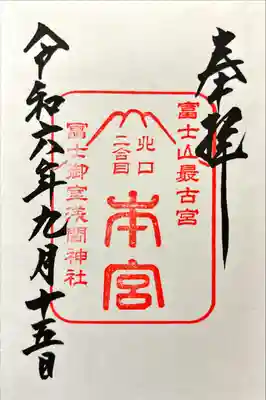 奉拝
冨士山最古宮
北口
二合目
本宮
冨士御室浅間神社
令和六年九月十五日